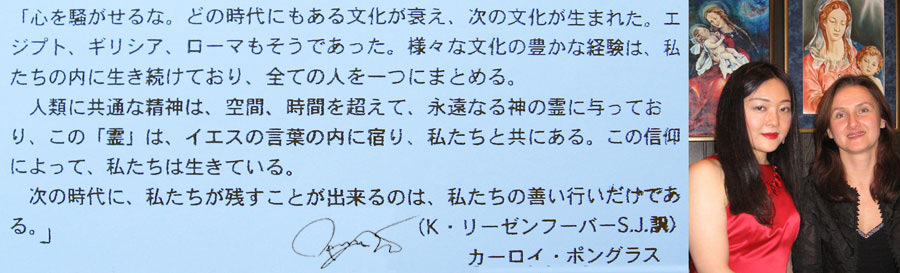 「心を騒がせるな。どの時代にもある文化が衰え、次の文化が生まれた。エ
ジプト、ギリシア、ローマもそうであった。様々な文化の豊かな経験は、私
たちの内に生き続けており、全ての人を一つにまとめる。
人類に共通な精神は、空間、時間を超えて、永遠なる神の霊に与ってお
り、この「霊」は、イエスの言葉の内に宿り、私たちと共にある。この信仰
によって、私たちは生きている。
次の時代に、私たちが残すことが出来るのは、私たちの善い行いだけであ
る。」
（K・リーゼンフーバーS.J.訳）
カーロイ・ポングラス